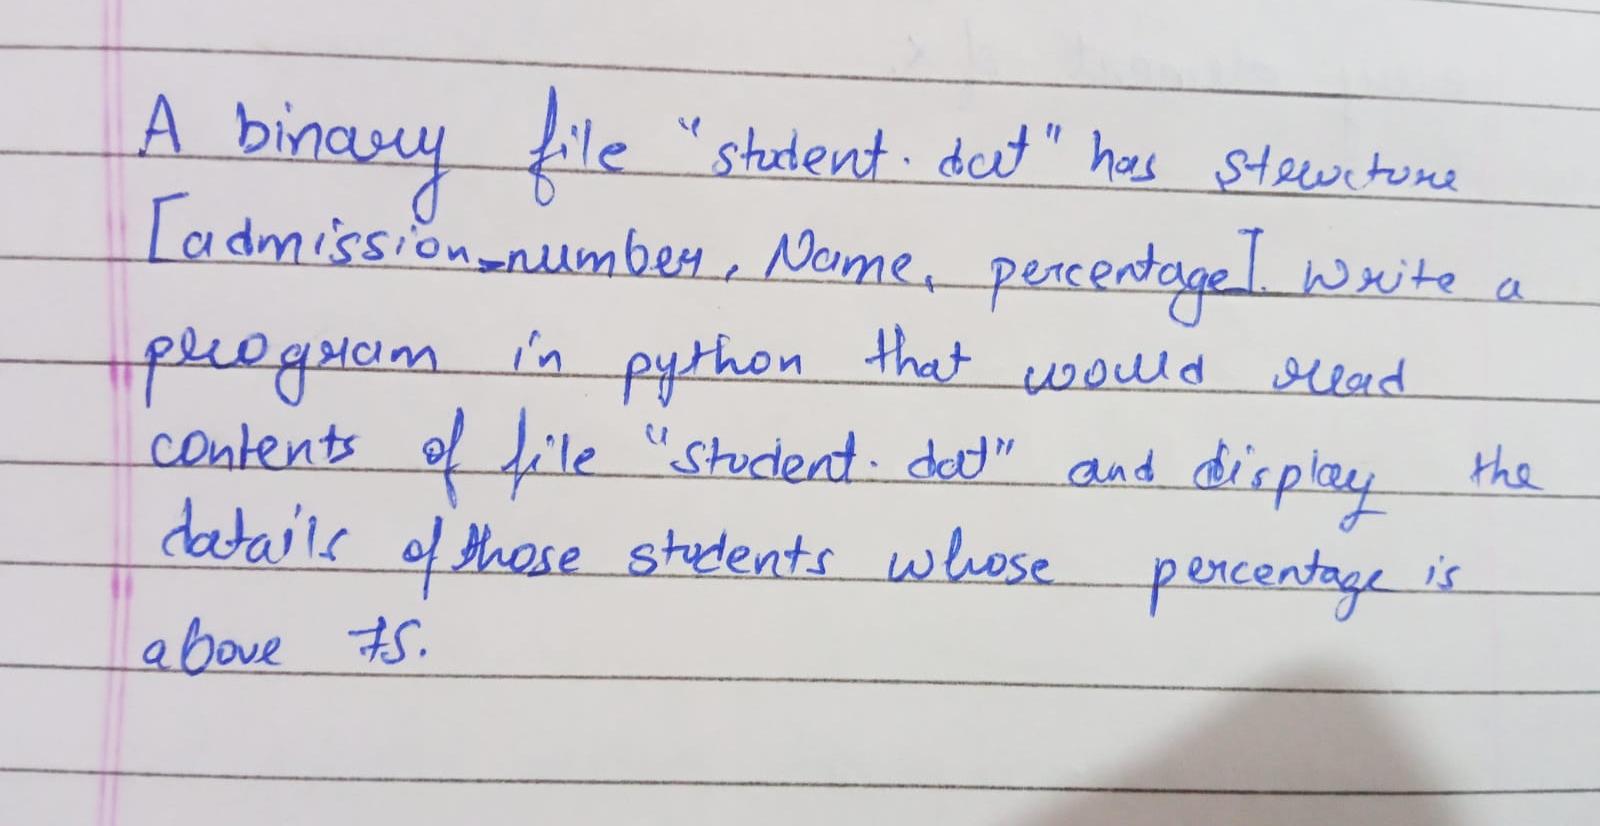 A binary file "student.dat" has structure
[admission_number, Name, percentage]. Write a
program in python that would read
contents of file "student.dat" and display the
datails of those students whose percentage is
above 75.